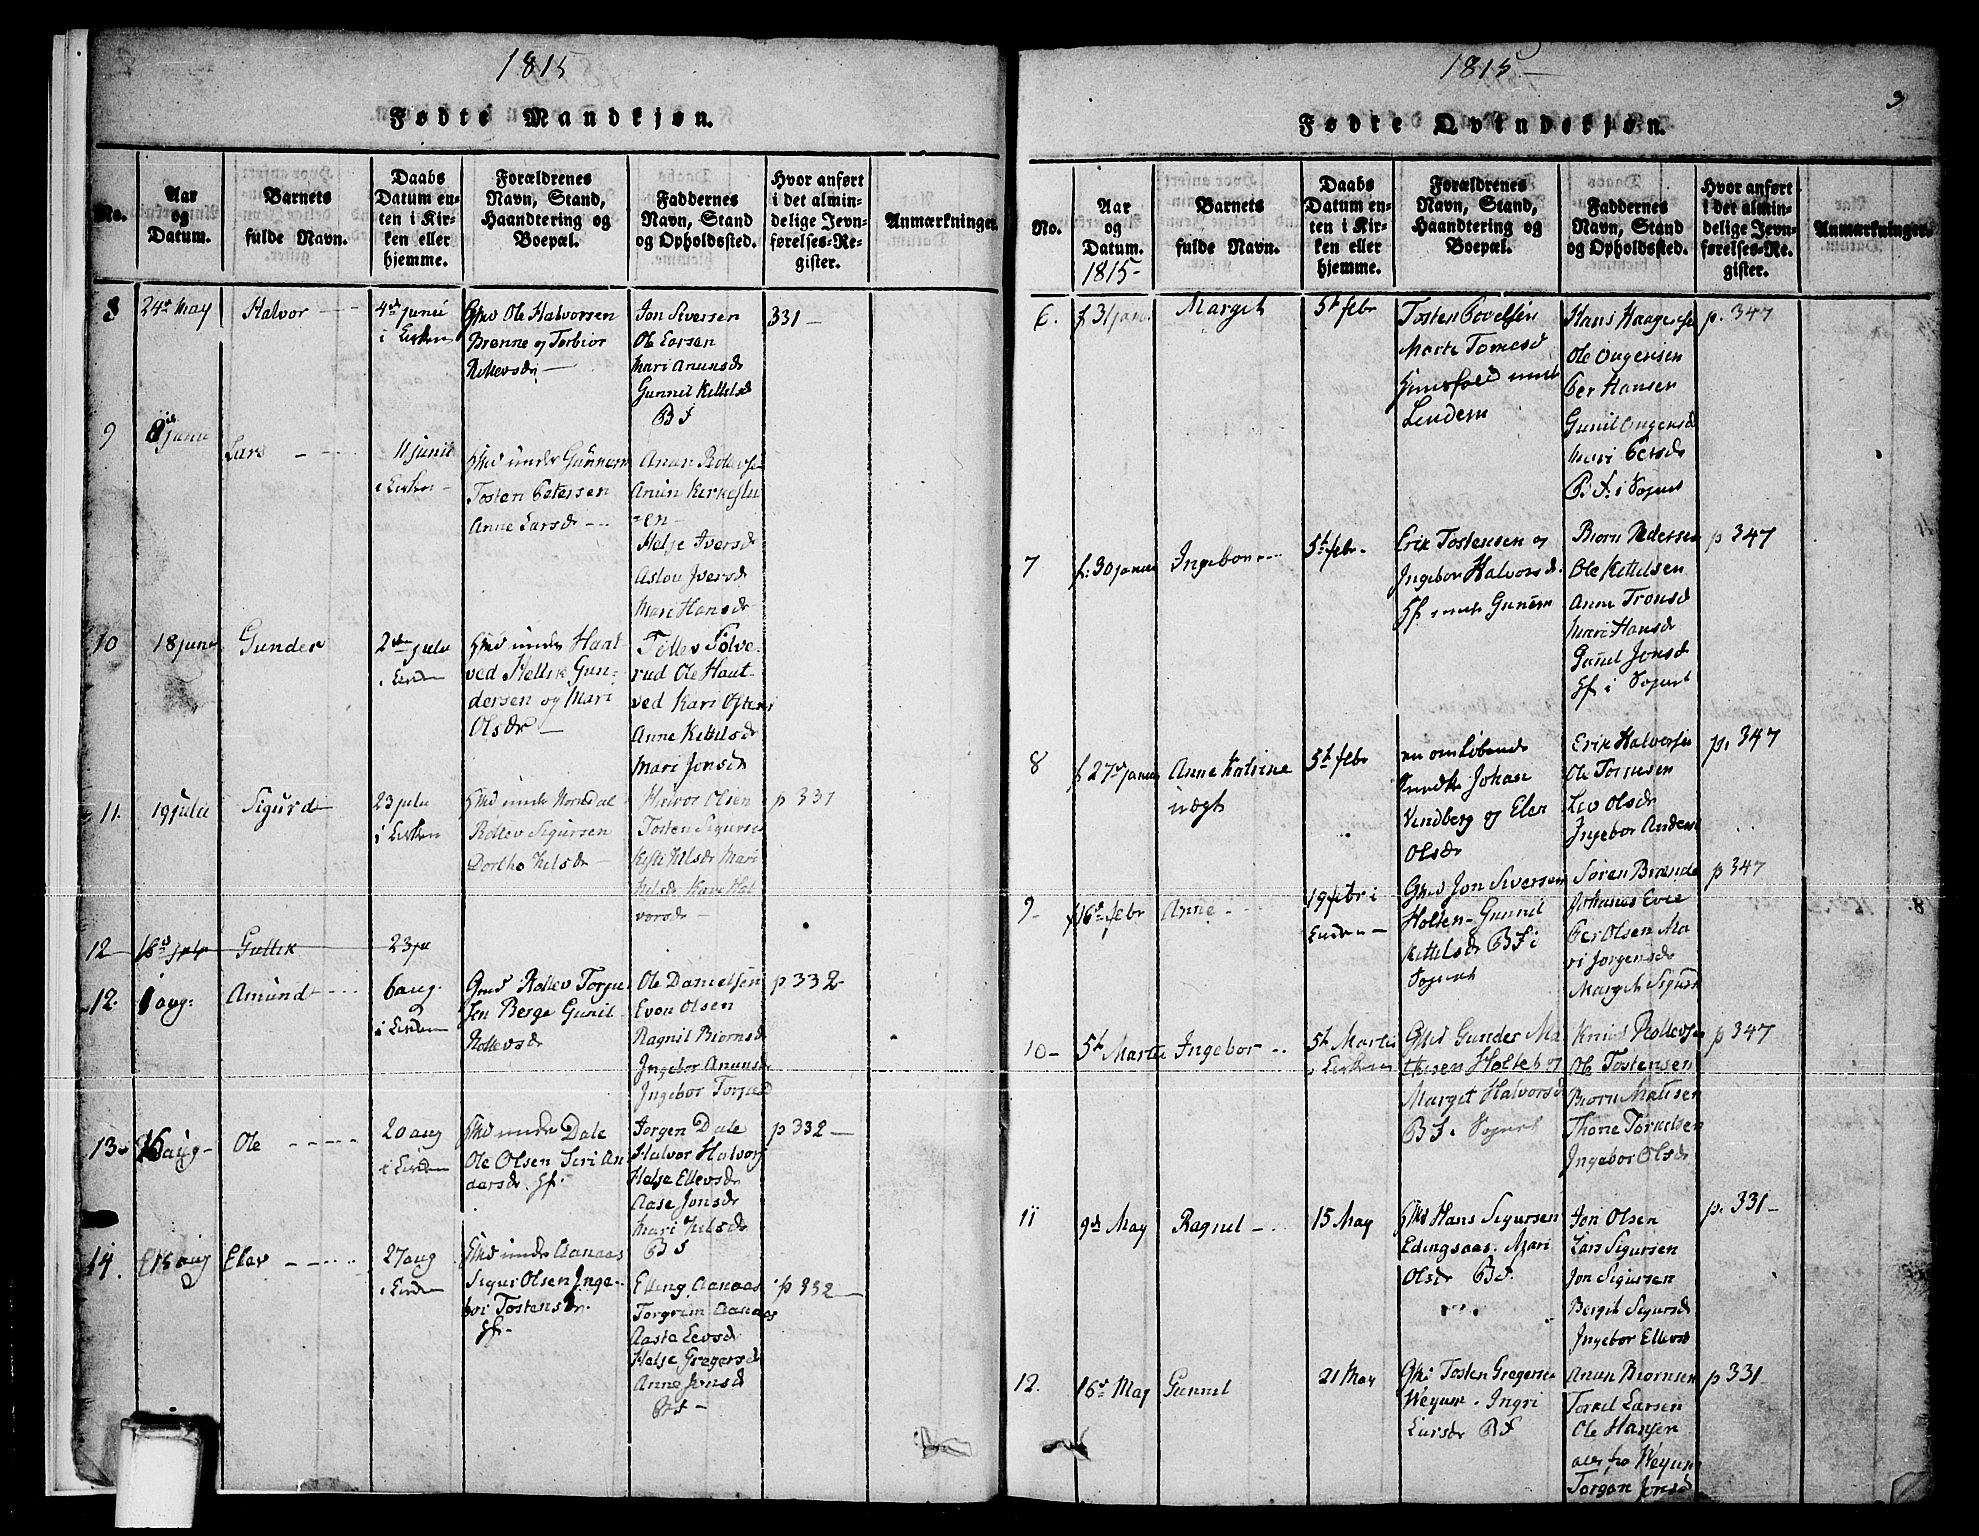 1815
Fødte Mandkjøn.
No.
Aar
og
Datum.
Barnets
fulde Navn.
Daabs
Datum en-
ten i Kir-
ken eller
hjemme.
Forældrenes
Navn, Stand,
Haandtering og
Boepæl.
Faddernes
Navn, Stand
og Opholdssted.
Hvor anført
i det almin-
delige Jevn-
førelses-Re-
gister.
Anmærkninger.
8
24de May
Halvor
4de junii
i Kirken
Ole Halvorsen
Brenne og Torbior
Rollevsdr
Jon Sversen
Ole Larsen
Mari Anunsdr
Gunnil Kettelsd
BS
331
9
8de junii
Lars
11 junii
i Kirken
under Gunnem
Tosten Petersen
Anne Larsdr
Anun Rollevse
Anun Kirkestu
en
Helje Iversdr
Aslou Iversdr
Mari Hansdr
10
18 junii
Gunder
2den julii
i Kirken
under Haat
ved Hellik Gun-
dersen og Mari
Olsdr
Tollev Tolve-
rud Ole Haat-
ved Kari Ostens
Anne Kettelsdr
Mari Jonsdr
11.
19 julii
Sigurd
23 julii
i Kirken
under Horndal
Rollev Sigursen
Dorthe Nelsdr
Halvor Olsen
Tosten Sigurse
Nelsdr Mari
Nelsdr Kari Hal
vorsdr
p 331
12
Gullik
23 ju
12.
1 aug:
Amund
6 aug.
i Kirken
Rollev Torju
sen Berge Gunil
Rollevsdr
Ole Danielsen
Even Olsen
Ragnil Biørnsd
Ingebor Anunsd
Ingebor Torjusd
p 332
13
aug
Ole
20 aug
i Kirken
under Dale
Ole Olsen Siri An
dersdr. Sf.
Jorgen Dale
Halvor Halvors
Helje Ellevsdr
Aase Jonsdr
Mari Nelsdr
BS
p 332
14.
aug
Elev
27 aug
i Kirken
under Aanaas
Sigur Olsen Inge-
bor Tostensdr.
Sf.
Elling Aanaas
Torgrim Aanaas
Aaste Levsdr
Helje Gregersd
Anne Jonsd
BS
p 332
1815
3
Fødte Qvindekjøn.
No.
Aar
og
Datum.
1815
Barnets
fulde Navn.
Daabs
Datum en-
ten i Kir-
ken eller
hjemme.
Forældrenes
Navn, Stand,
Haandtering og
Boepæl.
Faddernes
Navn, Stand
og Opholdssted.
Hvor anført
i det almin-
delige Jevn-
førelses-Re-
gister.
Anmærkninger.
6.
f 31 jan.
Margit
5t febr
Tosten Povelsen
Marte Tomesd
Hans Haagense
Ole Ougensen
Per Hansen
Gunil Ougensd
Mari Persdr
B.S. i Sognet
p. 347
7
f. 30 januar
Ingebor
5t febr.
Erik Tostensen og
Ingebor Halvorsd.
Biorn Pedersen
Ole Kettelsen
Anne Tronsd
Mari Hansdr
Gonil Jonsdr
Sf. i Sognet
p 347
8
f 27de januar
Anne Katrine
uægt
5t febr
en omløbende
Johan
Vindberg og Elen
Olsdr
Erik Halvorsen
Ole Torjusen
Lev Olsdr
Ingebor Anders
p. 347
9
f 16de febr
Anne
19 febr i
Kirken
Jon Siversen
Holten Gunnil
Kettelsdr BS i
Sognet
Søren Brænde
Johanes Evie
Per Olsen Ma
ri Jorgensdr
Margit Sigurs
p 347
10
5t Marti
Ingebor
5t Marti
i Kirken
Gunder Ma
thisen Holte og
Marget Halvorsd
BS. Sognet
Knud Rollevsen
Ole Tostensen
Biorn Matisen
Thone Torkelsen
Ingebor Olsdr
p 347
11
9de May
Ragnil
15 May
Hans Sigursen
Edingsaas. Mari
Olsdr BS.
Jon Olsen
Lars Sigursen
Jon Sigursen
Bergit Sigursdr
Ingebor Ellevsd
p. 331
12.
16de May
Gunnil
21 May
Tosten Gregerse
Weyum. Ingri
Larsdr BS
Anun Biornsen
Torkil Larsen
Ole Hansen
alle fra Weyum
Torgon Jonsd
p 331